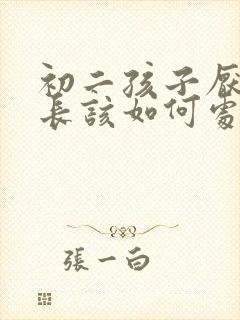 初二孩子厌
長該如何處
張一白